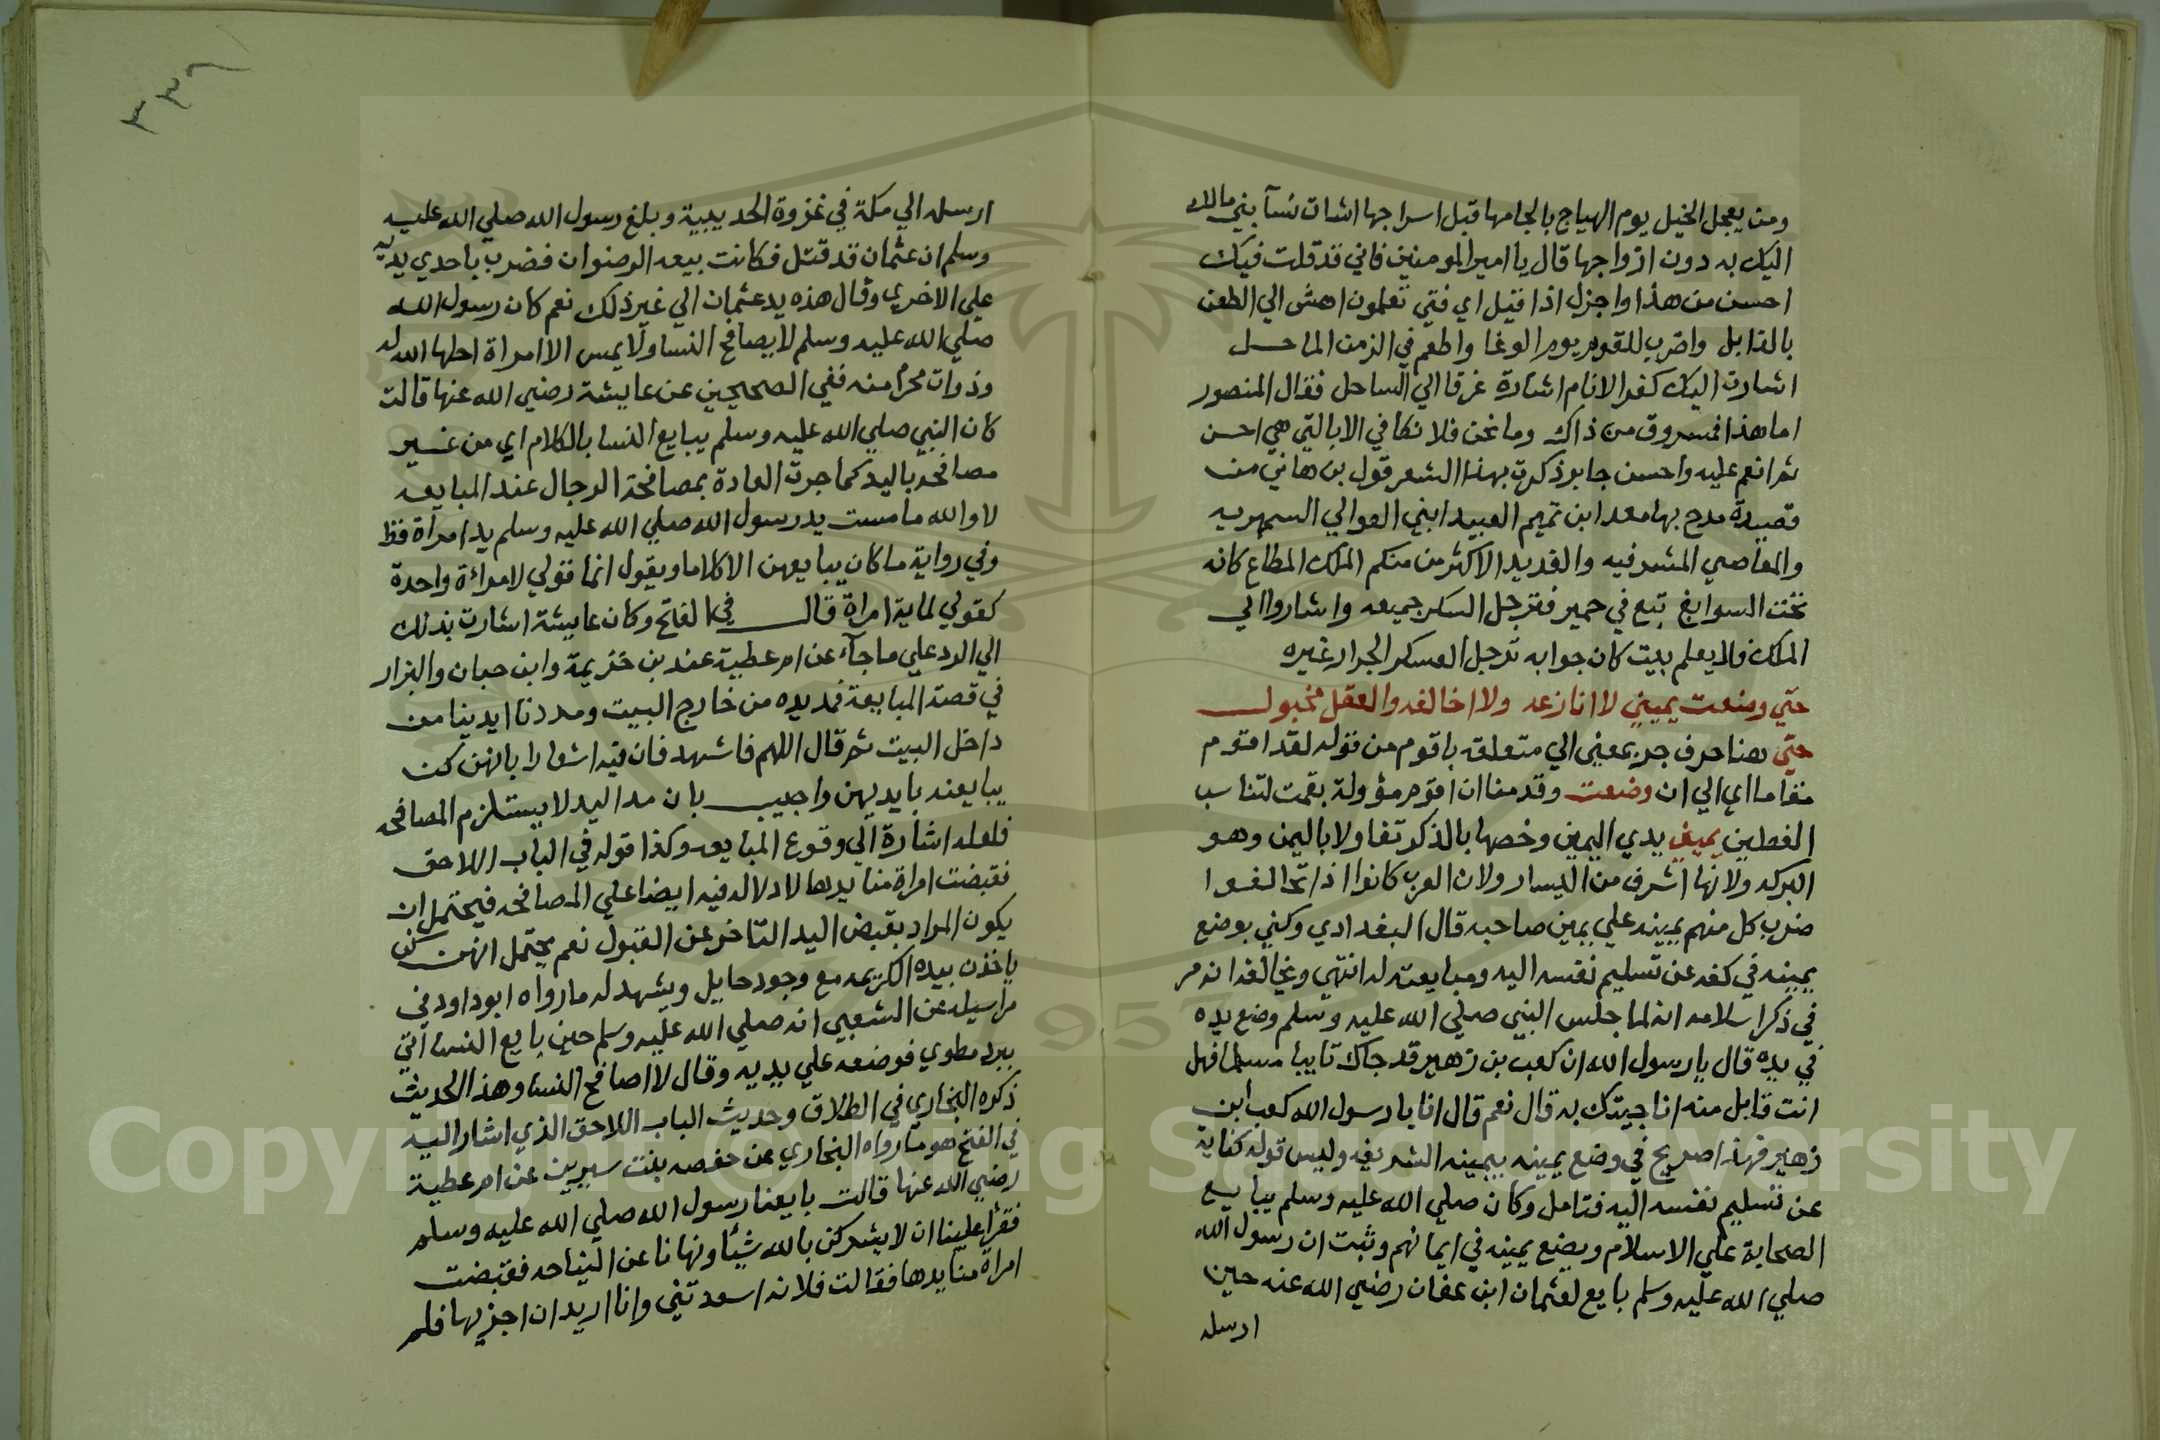 ومن يعجل الخيل يوم الهياج بالجامها قبل اسراجها اشات نسآ بني مالك
اليك به دون ازواجها قال يا امير المومنين فاني قد قلت فيك
احسن من هذا واجزل اذا قيل اي فتي تعلمون اهش الي الطعن
بالذابل واضرب للقوم يوم الوغا واطعم في الزمن الماحل
اشارت اليك كف الانام اشارة غرقا الي الساحل فقال المنصور
اما هذا فمسروق من ذاك وما نحن فلا نكافي الا بالتي هي احسن
ثم انعم عليه واحسن جايزه ذكرت بهذا الشعر قول بن هاني من
قصيدة مدح بها معد ابن تميم العبيد ابني العوالي السمهريه
والمعاصي المشرفيه والعديد الاكثر من منكم الملك المطاع كانه
تحت السوابغ تبع في حمير فترجل العسكر جميعه واشاروا الي
الملك فلم يعلم بيت كان جوابه ترجل العسكر الجرار غيره
حتي وضعت يميني لا انازعه ولا اخالفه والعقل مخبول
حتي هنا حرف جر بمعني الي متعلقه باقوم من قوله لقد اقوم
مقاما اي الي ان وضعت وقدمنا ان اقوم مؤولة بقمت لتناسب
الفعلين يميني يدي اليمين وخصها بالذكر تفاولا باليمن وهو
البركه ولانها اشرف من اليسار ولان العرب كانوا اذا تحالفوا
ضرب كل منهم يمينه علي يمين صاحبه قال البغدادي وكني بوضع
يمينه في كفه عن تسليم نفسه اليه ومبايعته له انتهي ويخالفه انه مر
في ذكر اسلامه انه لما جلس النبي صلي الله عليه وسلم وضع يده
في يده قال يا رسول الله ان كعب بن زهير قد جاك تايبا مسلما فهل
انت قابل منه انا جيتك به قال نعم قال انا يا رسول الله كعب ابن
زهير فهذا صريح في وضع يمينه بيمينه الشريفه وليس قوله كناية
عن تسليم نفسه اليه فتامل وكان صلي الله عليه وسلم يبايع
الصحابة علي الاسلام ويضع يمينه في ايمانهم وثبت ان رسول الله
صلي الله عليه وسلم بايع لعثمان ابن عفان رضي الله عنه حين
ارسله
٣٣٦
ارسله الي مكة في غزوة الحديبية وبلغ رسول الله صلي الله عليه
وسلم ان عثمان قد قتل فكانت بيعه الرضوان فضرب باحدي يديه
علي الاخري وقال هذه يد عثمان الي غير ذلك نعم كان رسول الله
صلي الله عليه وسلم لا يصافح النسا ولا يمس الا امراة احلها الله له
وذوات محرم منه ففي الصحيحين عن عايشة رضي الله عنها قالت
كان النبي صلي الله عليه وسلم يبايع النسا بالكلام اي من غير
مصافحه باليد كما جرت العادة بمصافحة الرجال عند المبايعه
لا والله ما مست يد رسول الله صلي الله عليه وسلم يد امراة قط
وفي رواية ما كان يبايعهن الا كلاما ويقول انما قولي لامراءة واحدة
كقولي لماية امراة قال في الفتح وكان عايشة اشارت بذلك
الي الرد علي ما جآء عن ام عطية عند بن خزيمة وابن حبان والبزار
في قصة المبايعة فمد يده من خارج البيت ومددنا ايدينا من
داخل البيت ثم قال اللهم فاشهد فان فيه اشعارا بانهن كن
يبايعنه بايديهن واجيب بان مد اليد لا يستلزم المصافحه
فلعله اشارة الي وقوع المبايعه وكذا قوله في الباب اللاحق
نقبضت امراة منا يدها لا دلاله فيه ايضا علي المصافحه فيحتمل ان
يكون المراد بقبض اليد التاخر عن القبول نعم يحتمل انهن كن
ياخذن بيده الكريمه مع وجود حايل ويشهد له ما رواه ابو داود في
مراسيله عن الشعبي انه صلي الله عليه وسلم حين بايع النسا اتي
ببرد مطوي فوضعه علي يديه وقال لا اصافح النسا وهذا الحديث
ذكره البخاري في الطلاق وحديث الباب اللاحق الذي اشار اليه
في الفتح هو ما رواه البخاري عن حفصه بنت سيرين عن ام عطية
رضي الله عنها قالت بايعنا رسول الله صلي الله عليه وسلم
فقرأ علينا ان لا يشركن بالله شيئا ونهانا عن النياحه فقبضت
امراة منا يدها فقالت فلانه اسعدتني وانا اريد ان اجزيها فلم
Copyright © King Saud University